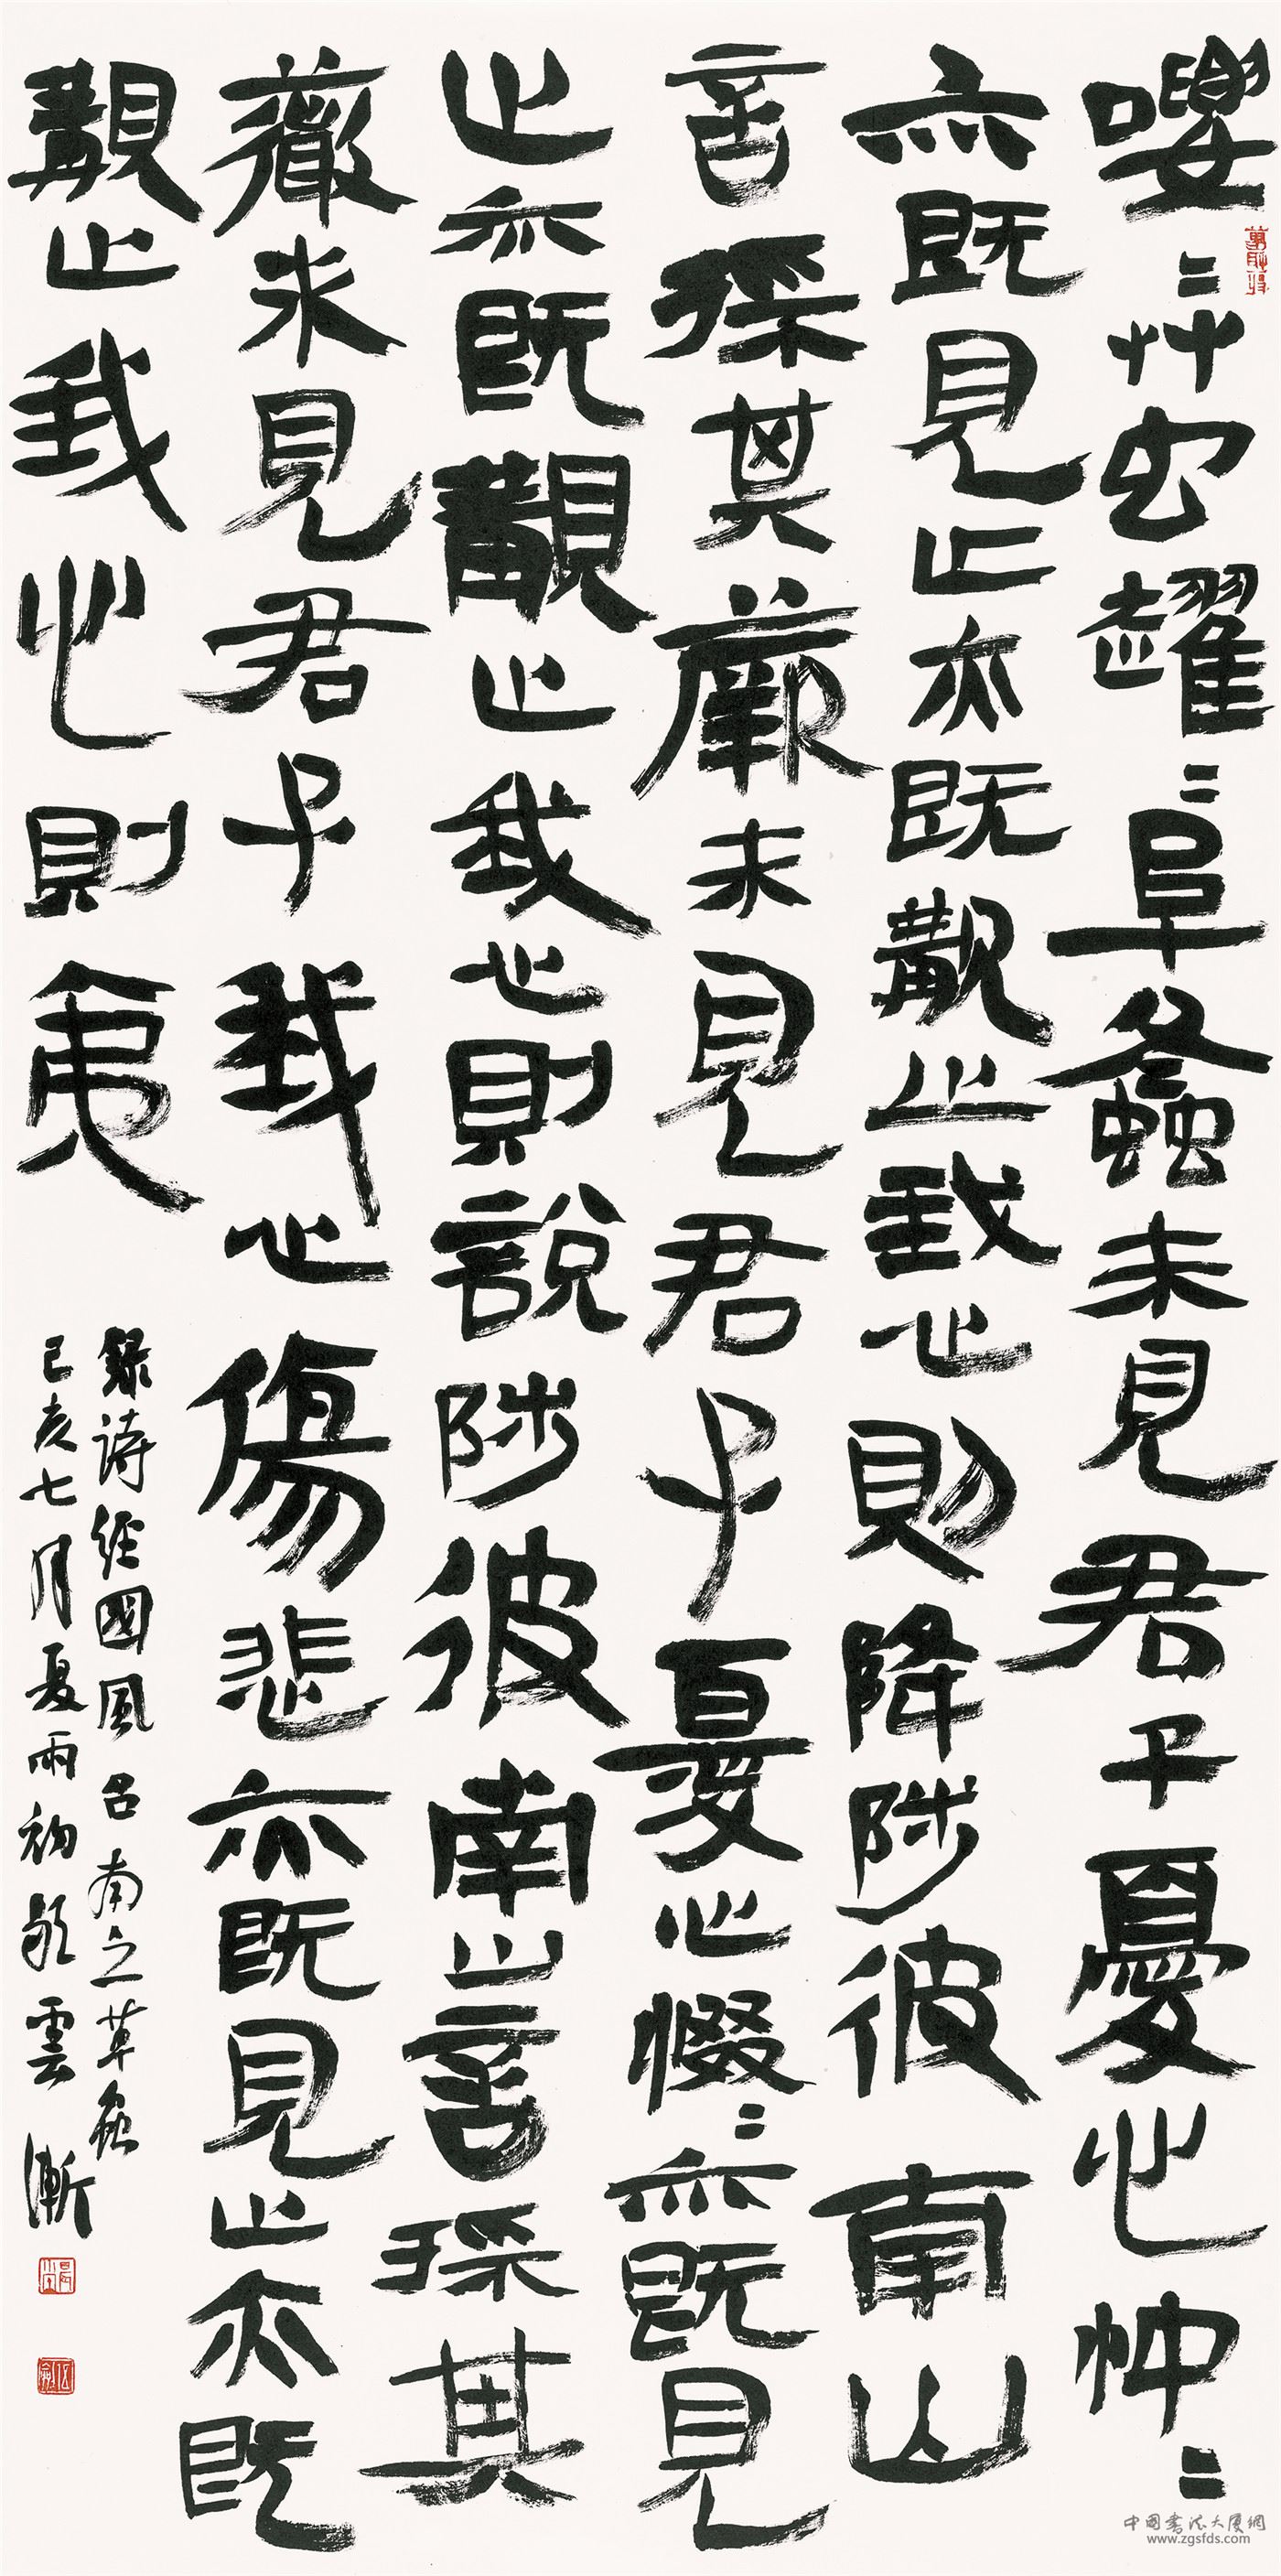 喓〻艸虫趯〻阜螽未見君子憂心忡〻
亦既見止亦既觀止我心則降陟彼南山
言採其蕨未見君子憂心惙〻亦既見
止亦既觀止我心則說陟彼南山言採其
薇未見君子我心傷悲亦既見止亦既
觀止我心則夷
錄詩經國風召南之草蟲
己亥七月夏雨初歇雲漸
中国書法大厦網
www.zgsfds.com